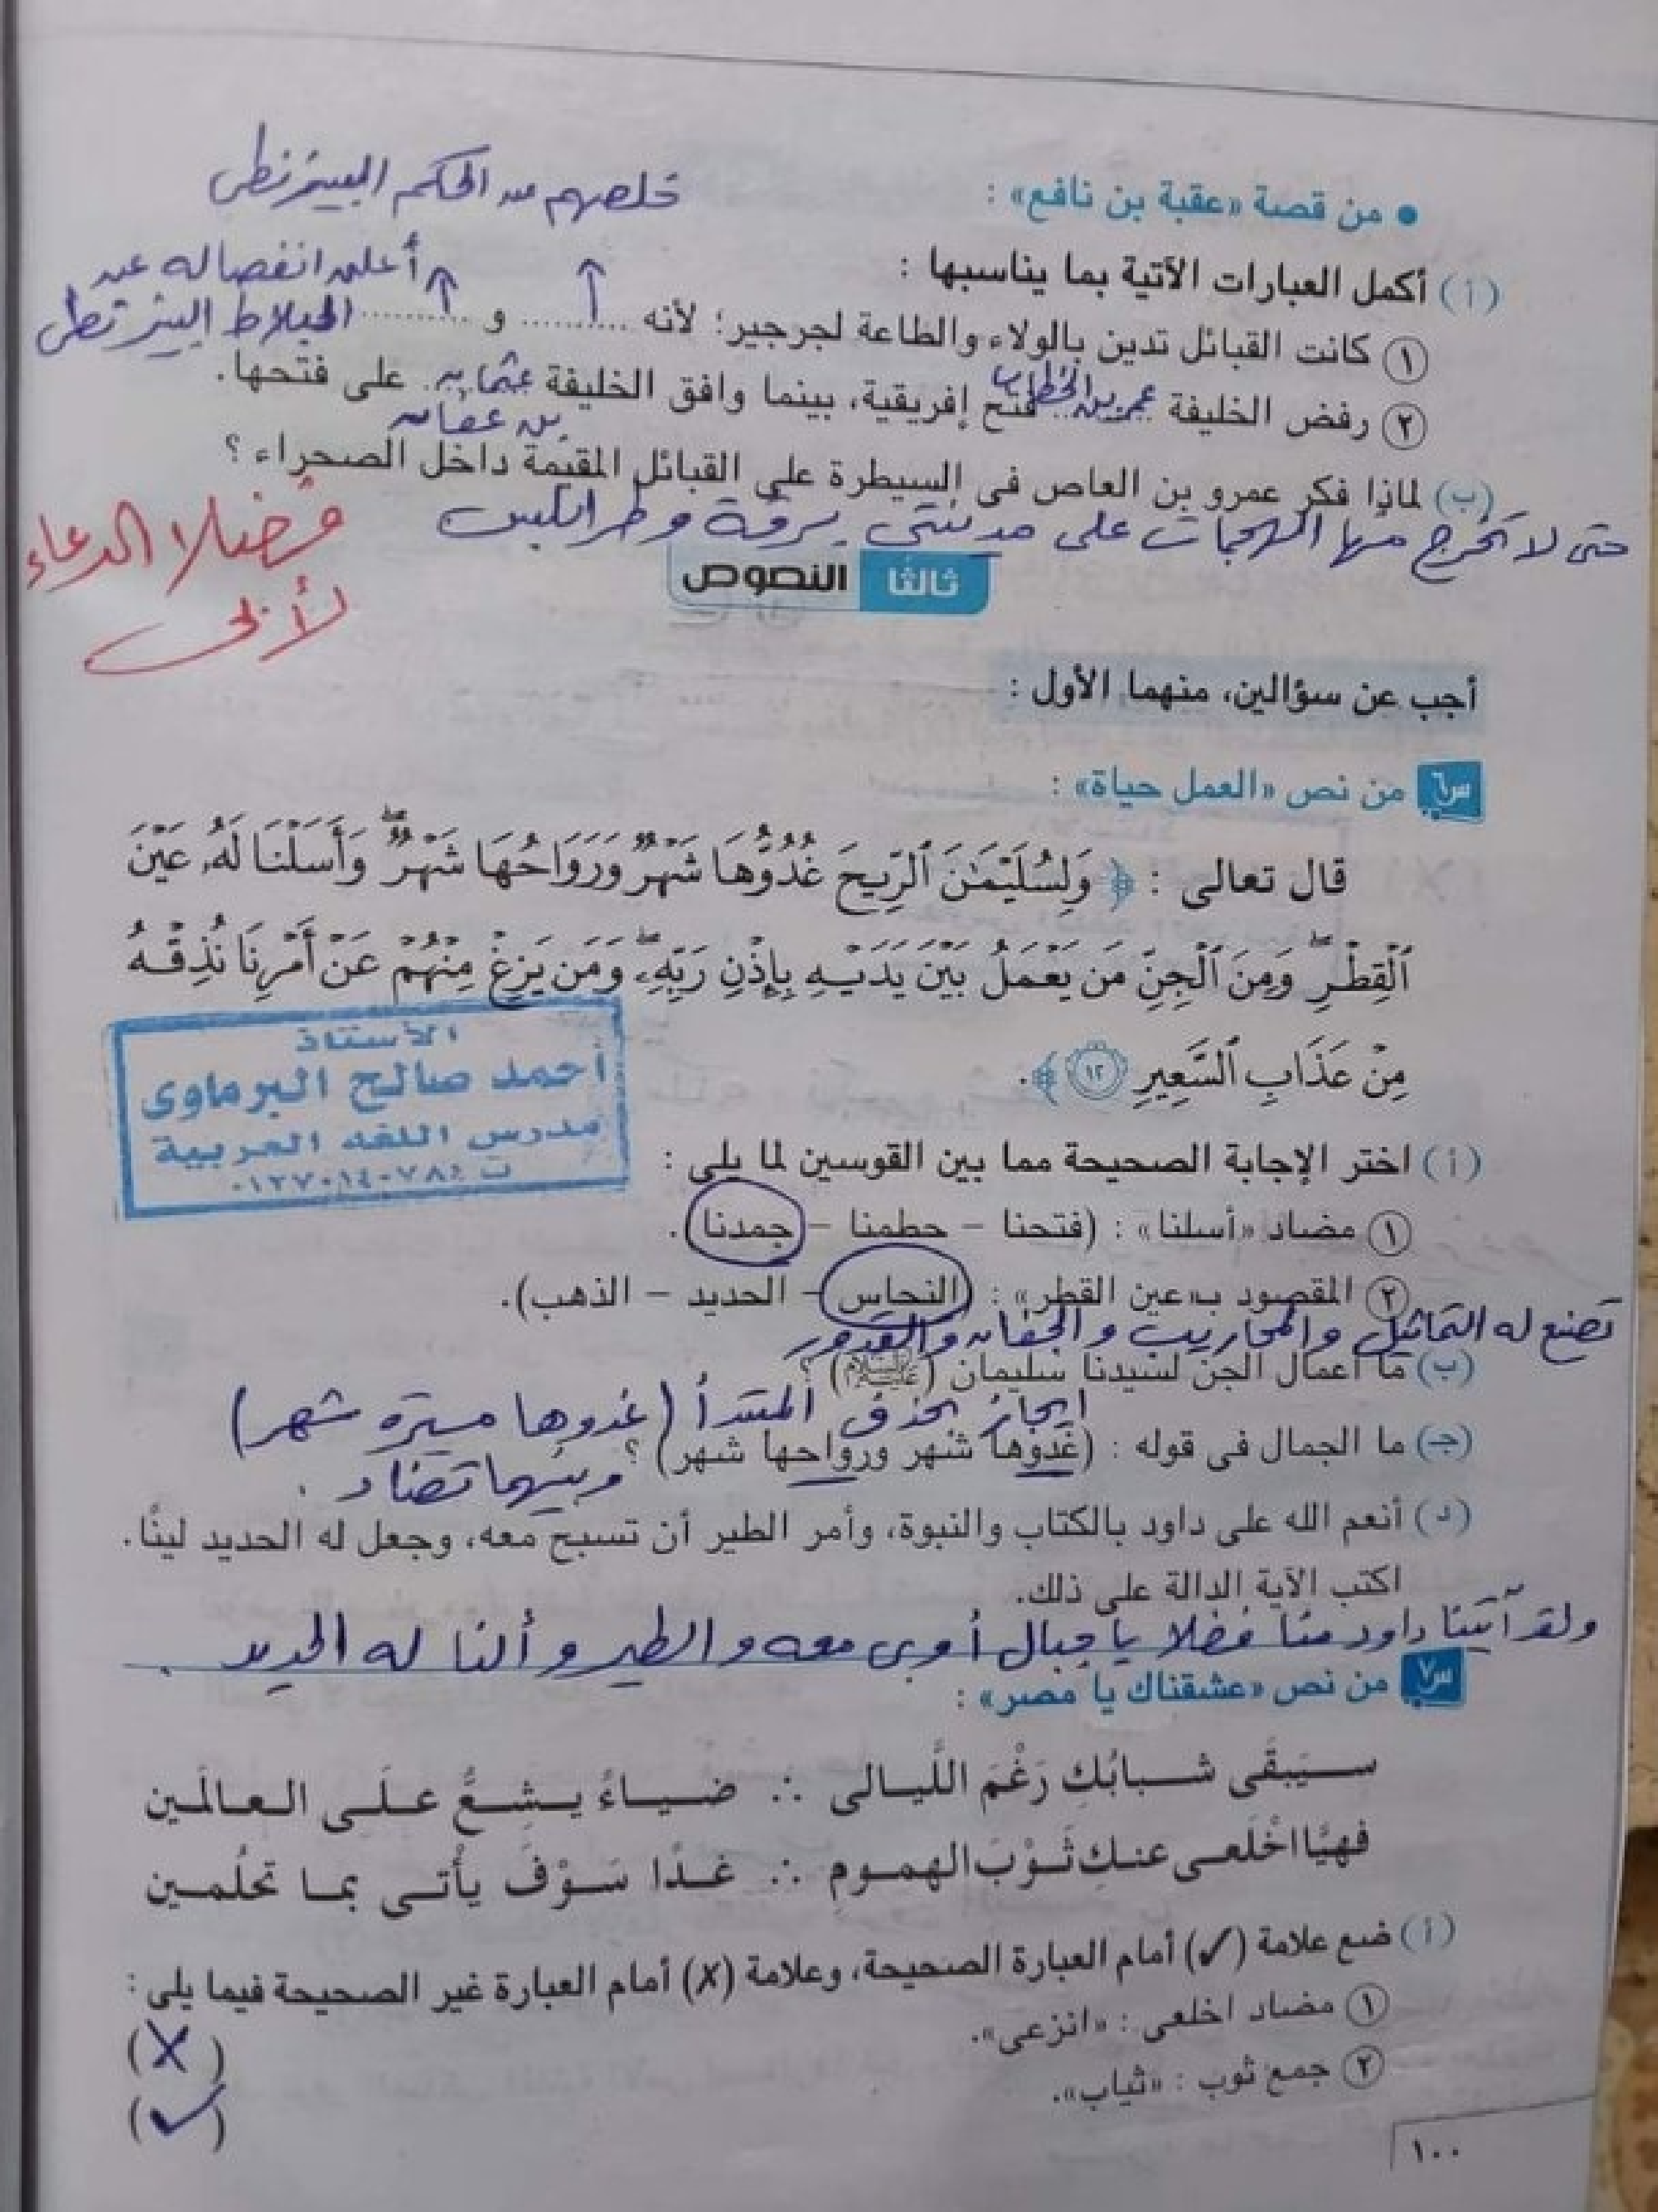 خلصهم من الحكم البيزنطى
• من قصة «عقبة بن نافع» :
(أ) أكمل العبارات الآتية بما يناسبها :
أعلن انفصاله عن
١ كانت القبائل تدين بالولاء والطاعة لجرجير؛ لأنه .......... و .......... البلاط البيزنطى
٢ رفض الخليفة عمر بن الخطاب فتح إفريقية، بينما وافق الخليفة عثمان على فتحها.
بن عفان
(ب) لماذا فكر عمرو بن العاص فى السيطرة على القبائل المقيمة داخل الصحراء ؟
حتى لا تخرج منها الهجمات على مدينتى برقة وطرابلس
فضلا الدعاء
لأبى
ثالثًا النصوص
أجب عن سؤالين، منهما الأول :
س٦ من نص «العمل حياة» :
قال تعالى : ﴿ وَلِسُلَيْمَٰنَ ٱلرِّيحَ غُدُوُّهَا شَهْرٌ وَرَوَاحُهَا شَهْرٌ ۖ وَأَسَلْنَا لَهُۥ عَيْنَ
ٱلْقِطْرِ ۖ وَمِنَ ٱلْجِنِّ مَن يَعْمَلُ بَيْنَ يَدَيْهِ بِإِذْنِ رَبِّهِۦ ۖ وَمَن يَزِغْ مِنْهُمْ عَنْ أَمْرِنَا نُذِقْهُ
مِنْ عَذَابِ ٱلسَّعِيرِ ١٢ ﴾.
الأستاذ
أحمد صالح البرماوى
مدرس اللغه العربية
ت ٠١٢٧٠١٤٠٧٨٤
(أ) اختر الإجابة الصحيحة مما بين القوسين لما يلى :
١ مضاد «أسلنا» : (فتحنا – حطمنا – جمدنا).
٢ المقصود بـ«عين القطر» : (النحاس – الحديد – الذهب).
تصنع له التماثيل والمحاريب والجفان والقدور
(ب) ما أعمال الجن لسيدنا سليمان (عليه السلام) ؟
إيجاز بحذف المبتدأ (غدوها مسيرة شهر)
(جـ) ما الجمال فى قوله : (غدوها شهر ورواحها شهر) ؟
وبينهما تضاد .
(د) أنعم الله على داود بالكتاب والنبوة، وأمر الطير أن تسبح معه، وجعل له الحديد لينًا.
اكتب الآية الدالة على ذلك.
ولقد آتينا داود منا فضلا يا جبال أوبى معه والطير وألنا له الحديد .
س٧ من نص «عشقناك يا مصر» :
سـيَبقَى شـبابُكِ رَغْمَ اللَّيالى ∴ ضـيـاءً يـشِـعُّ عـلَـى الـعـالَمـين
فهيَّا اخْلَعـى عنـكِ ثَـوْبَ الهمـومِ ∴ غـدًا سَـوْفَ يأْتـى بمـا تحْلُمـين
(أ) ضع علامة (✓) أمام العبارة الصحيحة، وعلامة (✗) أمام العبارة غير الصحيحة فيما يلى :
١ مضاد اخلعى : «انزعى». (✗)
٢ جمع ثوب : «ثياب». (✓)
١٠٠